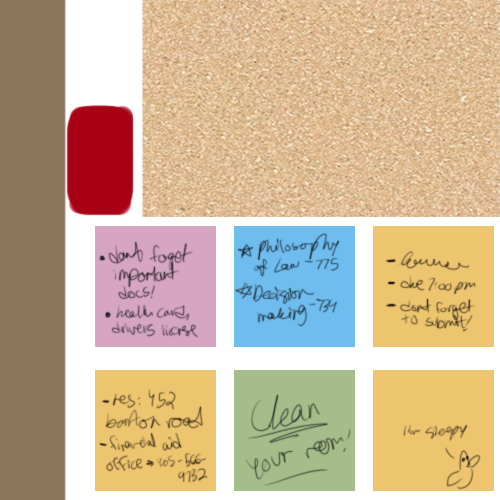 • dont forget
important
docs!
• health card,
drivers license
☆ Philosophy
of Law - 775
☆ Decision
making - 734
-
- due 7:00 pm
- dont forget
to submit!
- res: 452
barton road
- financial aid
office → 505-566-
9732
Clean
your room!
i'm sleepy